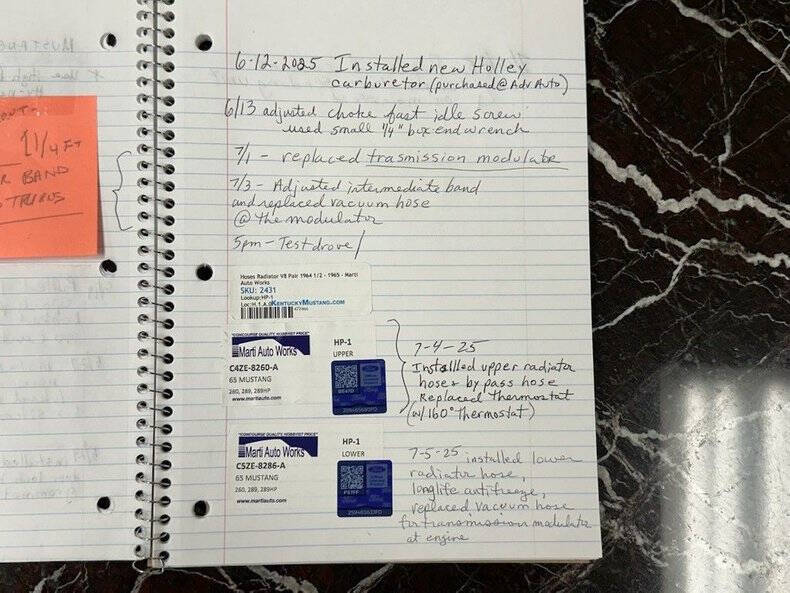 6-12-2025 Installed new Holley
carburetor (purchased @ Adv Auto)
6/13 adjusted choke fast idle screw
used small 1/4" box end wrench
7/1 - replaced trasmission modulate
7/3 - Adjusted intermediate band
and replaced vacuum hose
@ the modulator
5pm - Test drove
Hoses Radiator V8 Pair 1964 1/2 - 1965 - Marti
Auto Works
SKU: 2431
Lookup:HP-1
KENTUCKYMUSTANG.COM
"CONCOURSE QUALITY HOBBYIST PRICE"
Marti Auto Works
HP-1
UPPER
C4ZE-8260-A
65 MUSTANG
260, 289, 289HP
www.martiauto.com
7-4-25
Installled upper radiator
hose & by pass hose
Replaced Thermostat
(w/160° Thermostat)
"CONCOURSE QUALITY HOBBYIST PRICE"
Marti Auto Works
HP-1
LOWER
C5ZE-8286-A
65 MUSTANG
260, 289, 289HP
www.martiauto.com
7-5-25 installed lower
radiator hose,
longlife antifreeze,
replaced vacuum hose
for transmission modulator
at engine
1/4 FT
R BAND